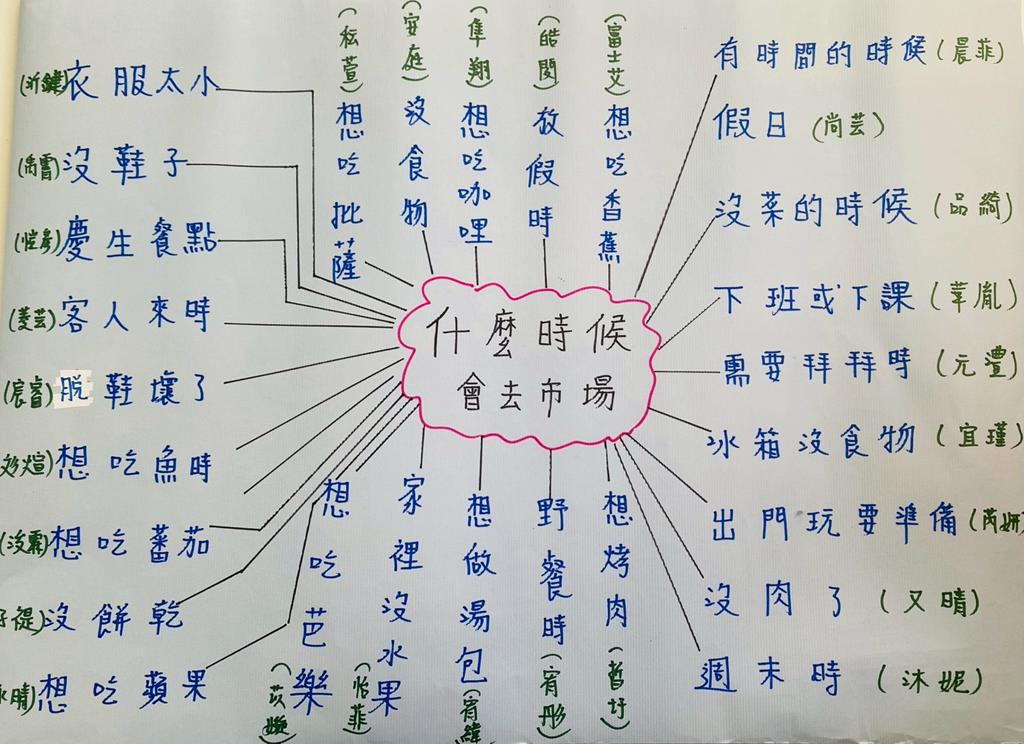 什麼時候
會去市場
衣服太小
沒鞋子 (禹霏)
慶生餐點 (愷彥)
客人來時 (菱芸)
脫鞋壞了 (宸睿)
想吃魚時
想吃蕃茄
沒餅乾
想吃蘋果
想吃批薩 (秐萱)
沒食物 (安庭)
想吃咖哩 (隼翔)
放假時 (皓閔)
想吃香蕉 (富士艾)
有時間的時候 (晨菲)
假日 (尚芸)
沒菜的時候 (品綺)
下班或下課 (莘胤)
需要拜拜時 (元灃)
冰箱沒食物 (宜瑾)
出門玩要準備 (芮妍)
沒肉了 (又晴)
週末時 (沐妮)
想吃芭樂
家裡沒水果 (怡菲)
想做湯包 (宥緯)
野餐時 (宥彤)
想烤肉